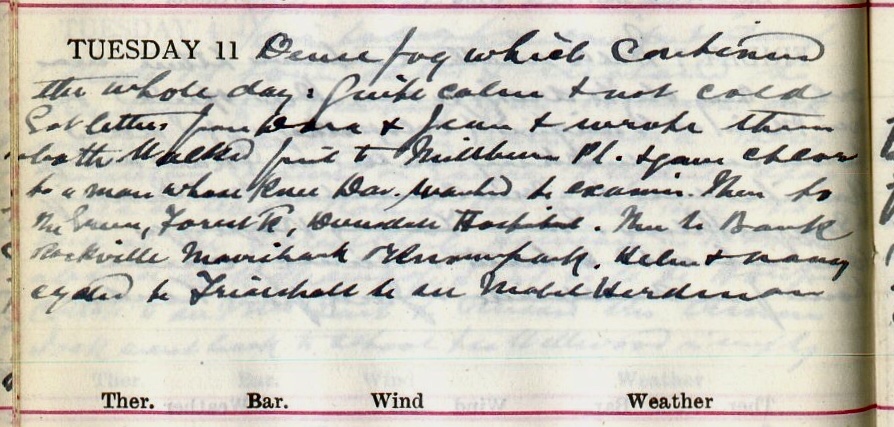 TUESDAY 11 Dense fog which continued
the whole day: Quite calm & not cold
Got letters from Dora & Jean & wrote them
both. Walked first to Millburn Pl. & gave chlor
to a man whose knee Dav. wanted to examin. Then to
Mr Green, Forest Rd, Hospital. Then to Bank
Rockville Mavisbank & Helen & Nancy
cycled to to see Mabel Herdman
Ther. Bar. Wind Weather